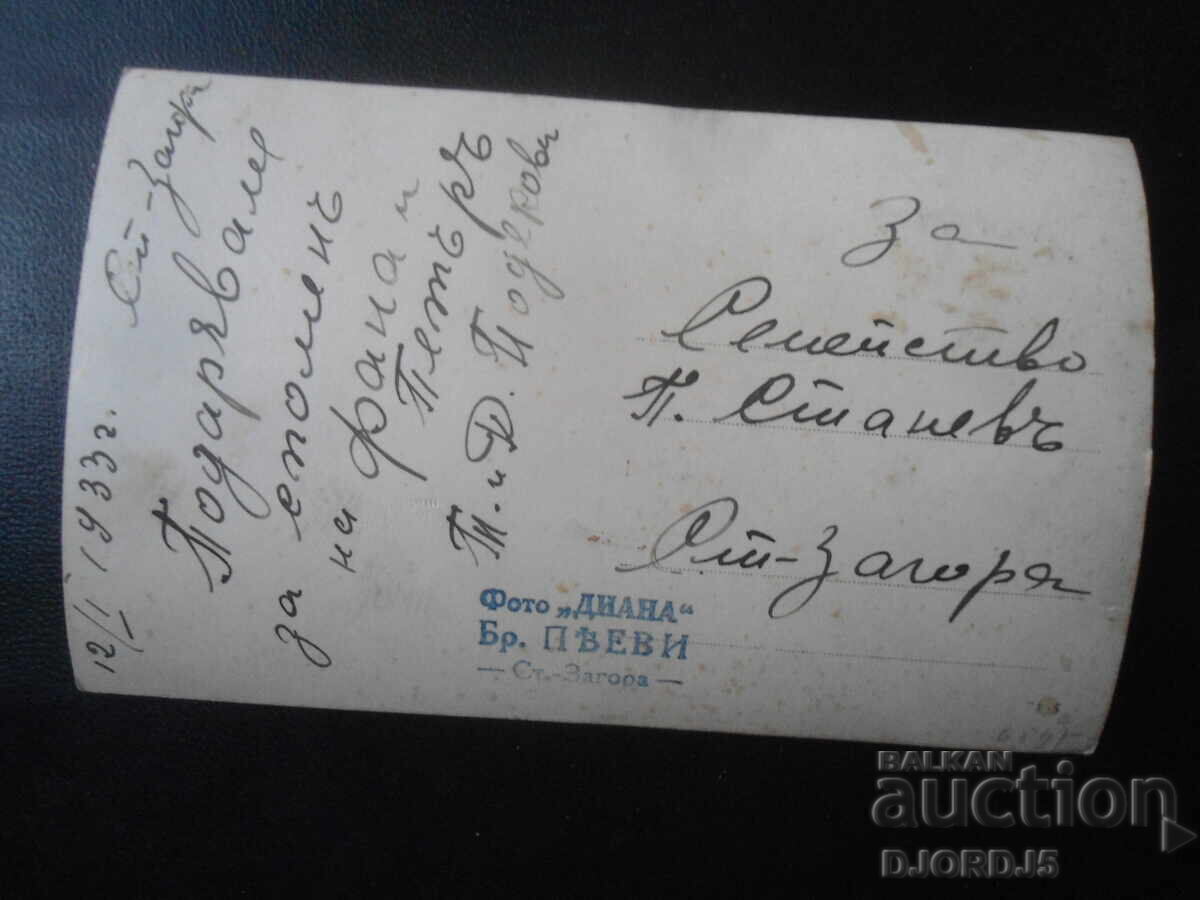 12/I 1933 г. Ст-Загора
Подаряваме
за споменъ
на фана и
Петъръ
Т. и Д. Подекови
За
Семейство
П. Станевъ
Ст-Загора
Фото „ДИАНА“
Бр. ПѢЕВИ
— Ст.-Загора —
BALKAN
auction
DJORDJ5